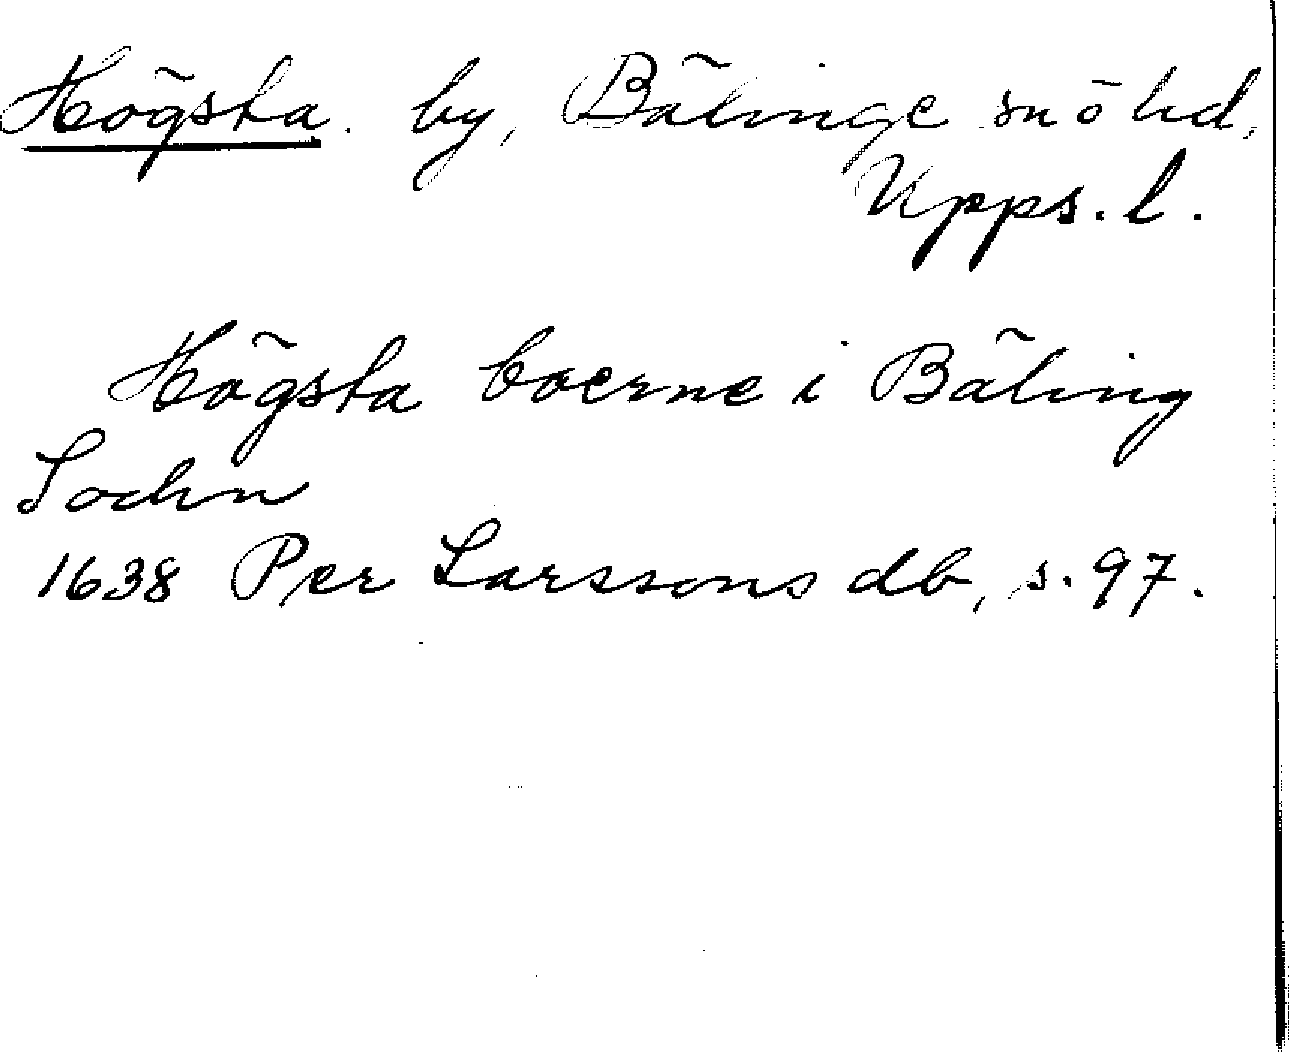 Högsta by, Bälinge snö hd,
Upps. l.
Högsta boerne i Bäling
Sochn
1638 Per Larssons db, s. 97.